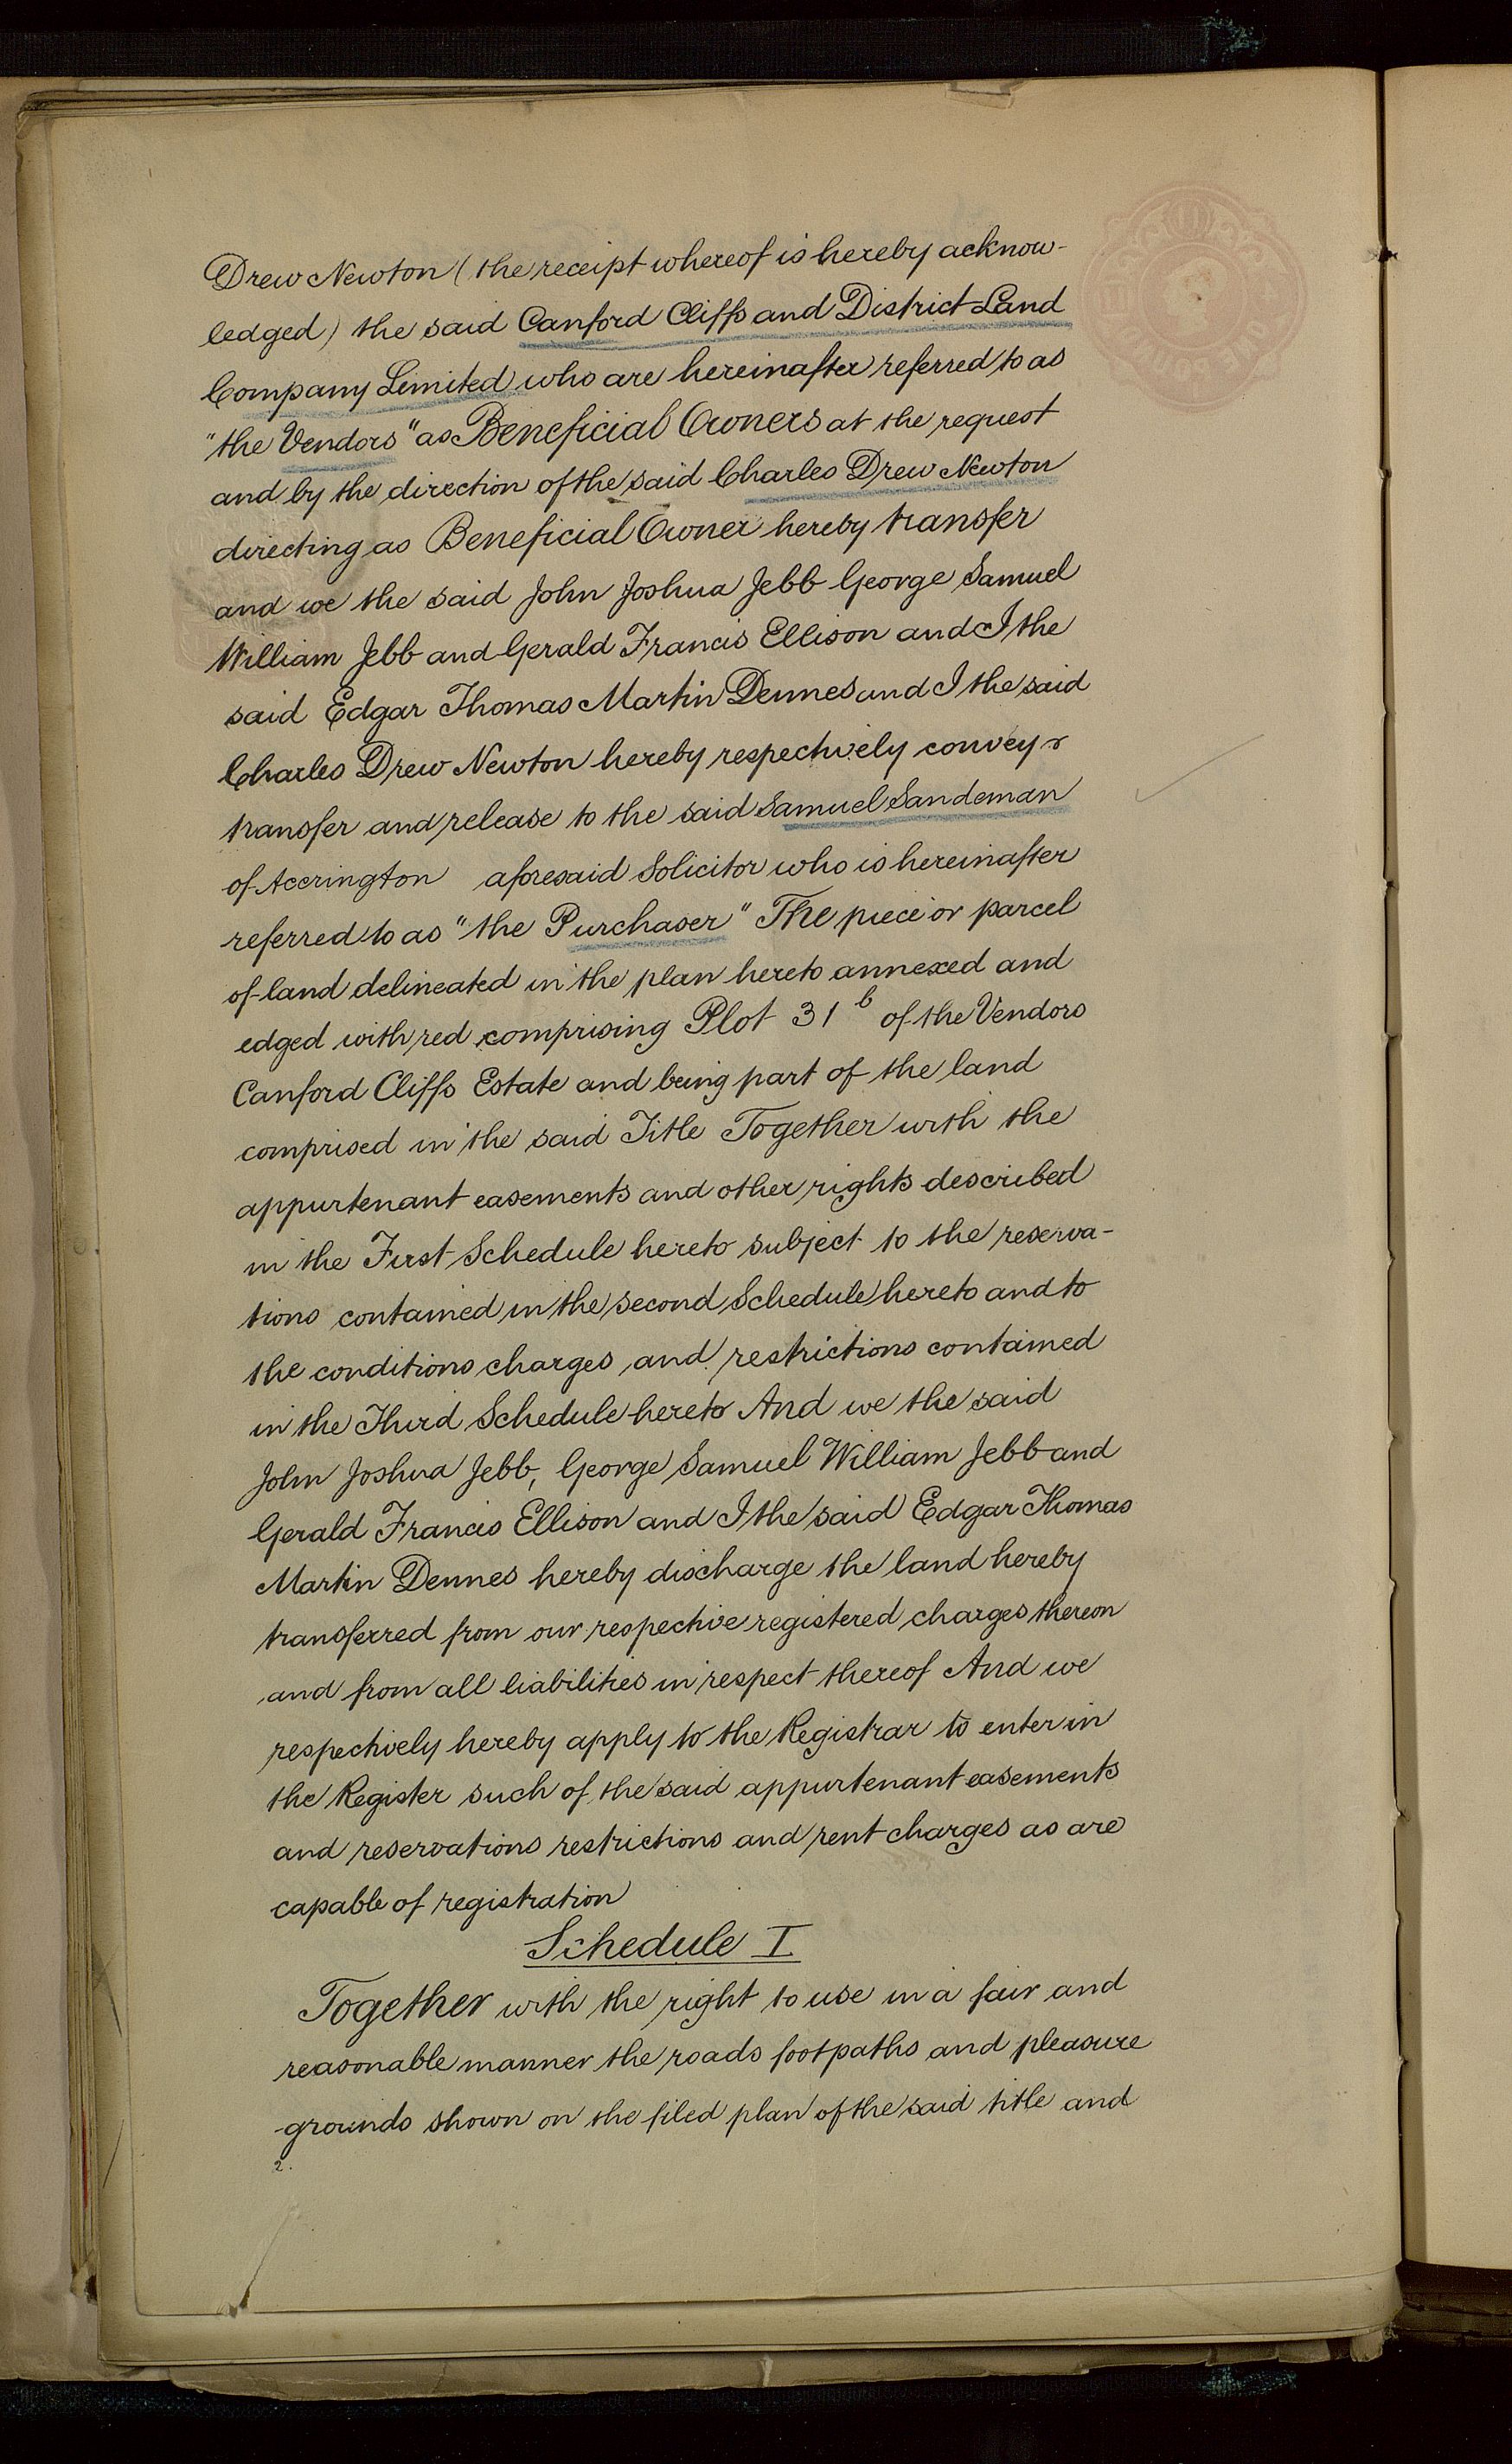 Drew Newton (the receipt whereof is hereby acknow-
ledged) the said Canford Cliffs and District Land
Company Limited who are hereinafter referred to as
"the Vendors" as Beneficial Owners at the request
and by the direction of the said Charles Drew Newton
directing as Beneficial Owner hereby transfer
and we the said John Joshua Jebb George Samuel
William Jebb and Gerald Francis Ellison and I the
said Edgar Thomas Martin Dennes and I the said
Charles Drew Newton hereby respectively convey &
transfer and release to the said Samuel Sandeman
of Accrington aforesaid Solicitor who is hereinafter
referred to as "the Purchaser" The piece or parcel
of land delineated in the plan hereto annexed and
edged with red comprising Plot 31 b of the Vendors
Canford Cliffs Estate and being part of the land
comprised in the said Title Together with the
appurtenant easements and other rights described
in the First Schedule hereto subject to the reserva-
tions contained in the second Schedule hereto and to
the conditions charges and restrictions contained
in the Third Schedule hereto And we the said
John Joshua Jebb, George Samuel William Jebb and
Gerald Francis Ellison and I the said Edgar Thomas
Martin Dennes hereby discharge the land hereby
transferred from our respective registered charges thereon
and from all liabilities in respect thereof And we
respectively hereby apply to the Registrar to enter in
the Register such of the said appurtenant easements
and reservations restrictions and rent charges as are
capable of registration
Schedule I
Together with the right to use in a fair and
reasonable manner the roads footpaths and pleasure
grounds shown on the filed plan of the said title and
2.